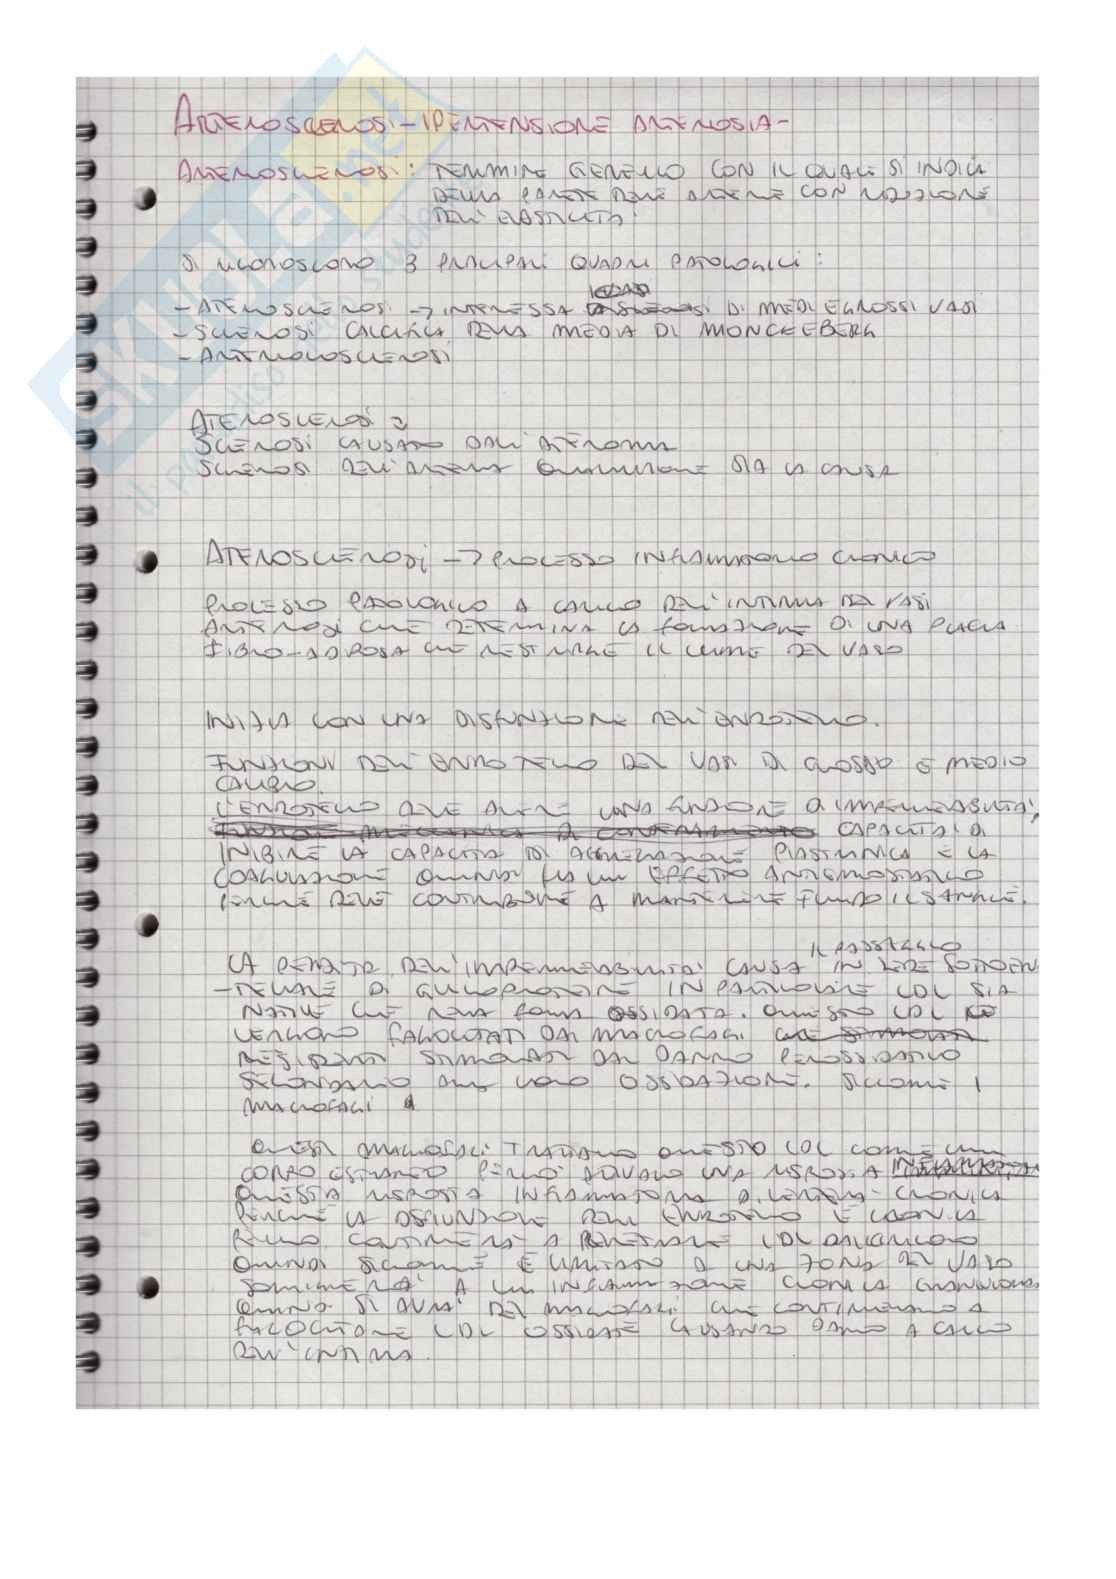 ARTERIOSCLEROSI - IPERTENSIONE ARTERIOSA -
ARTERIOSCLEROSI: TERMINE GENERICO CON IL QUALE SI INDICA
DELLA PARETE DELLE ARTERIE CON RIDUZIONE
DELL'ELASTICITÀ.
SI RICONOSCONO 3 PRINCIPALI QUADRI PATOLOGICI:
- ATEROSCLEROSI → INTERESSA DI MEDI E GROSSI VASI
- SCLEROSI CALCIFICA DELLA MEDIA DI MONCKEBERG
- ARTERIOLOSCLEROSI
ATEROSCLEROSI
SCLEROSI CAUSATO DALL'ATEROMA
SCLEROSI DELL'ARTERIA QUALUNQUE SIA LA CAUSA
ATEROSCLEROSI → PROCESSO INFIAMMATORIO CRONICO
PROCESSO PATOLOGICO A CARICO DELL'INTIMA DEI VASI
ARTERIOSI CHE DETERMINA LA FORMAZIONE DI UNA PLACCA
FIBRO-ADIPOSA CHE RESTRINGE IL LUME DEL VASO
INIZIA CON UNA DISFUNZIONE DELL'ENDOTELIO.
FUNZIONI DELL'ENDOTELIO DEI VASI DI GROSSO E MEDIO
CALIBRO.
L'ENDOTELIO OLTRE AVERE UNA FUNZIONE DI IMPERMEABILITÀ,
CAPACITÀ DI
INIBIRE LA CAPACITÀ DI AGGREGAZIONE PIASTRINICA E LA
COAGULAZIONE QUINDI HA UN EFFETTO ANTIEMOSTATICO
PERCHÉ DEVE CONTRIBUIRE A MANTENERE FLUIDO IL SANGUE.
IL PASSAGGIO
LA PERDITA DELL'IMPERMEABILITÀ CAUSA IN SEDE SOTTOEN
-TELIALE DI GLICOPROTEINE IN PARTICOLARE LDL SIA
NATIVE CHE NELLA FORMA OSSIDATA. QUESTO LDL
VENGONO FAGOCITATI DAI MACROFAGI
RESIDENTI STIMOLATI DAL DANNO PEROSSIDATIVO
SECONDARIO ALLA LORO OSSIDAZIONE. SICCOME I
MACROFAGI
QUESTI MACROFAGI TRATTANO QUESTO LDL COME UN
CORPO ESTRANEO PERCIÒ ATTUANO UNA RISPOSTA
QUESTA RISPOSTA INFIAMMATORIA DIVENTERÀ CRONICA
PERCHÉ LA DISFUNZIONE DELL'ENDOTELIO È CRONICA
CONTINUERÀ A PENETRARE LDL
QUINDI SICCOME È LIMITATO A UNA ZONA DEL VASO
A UN INFIAMMAZIONE CRONICA
QUINDI SI AVRÀ DEI MACROFAGI CHE CONTINUERANNO A
FAGOCITARE LDL OSSIDATE CAUSANDO DANNO A CARICO
DELL'INTIMA.
SKUOLA.net